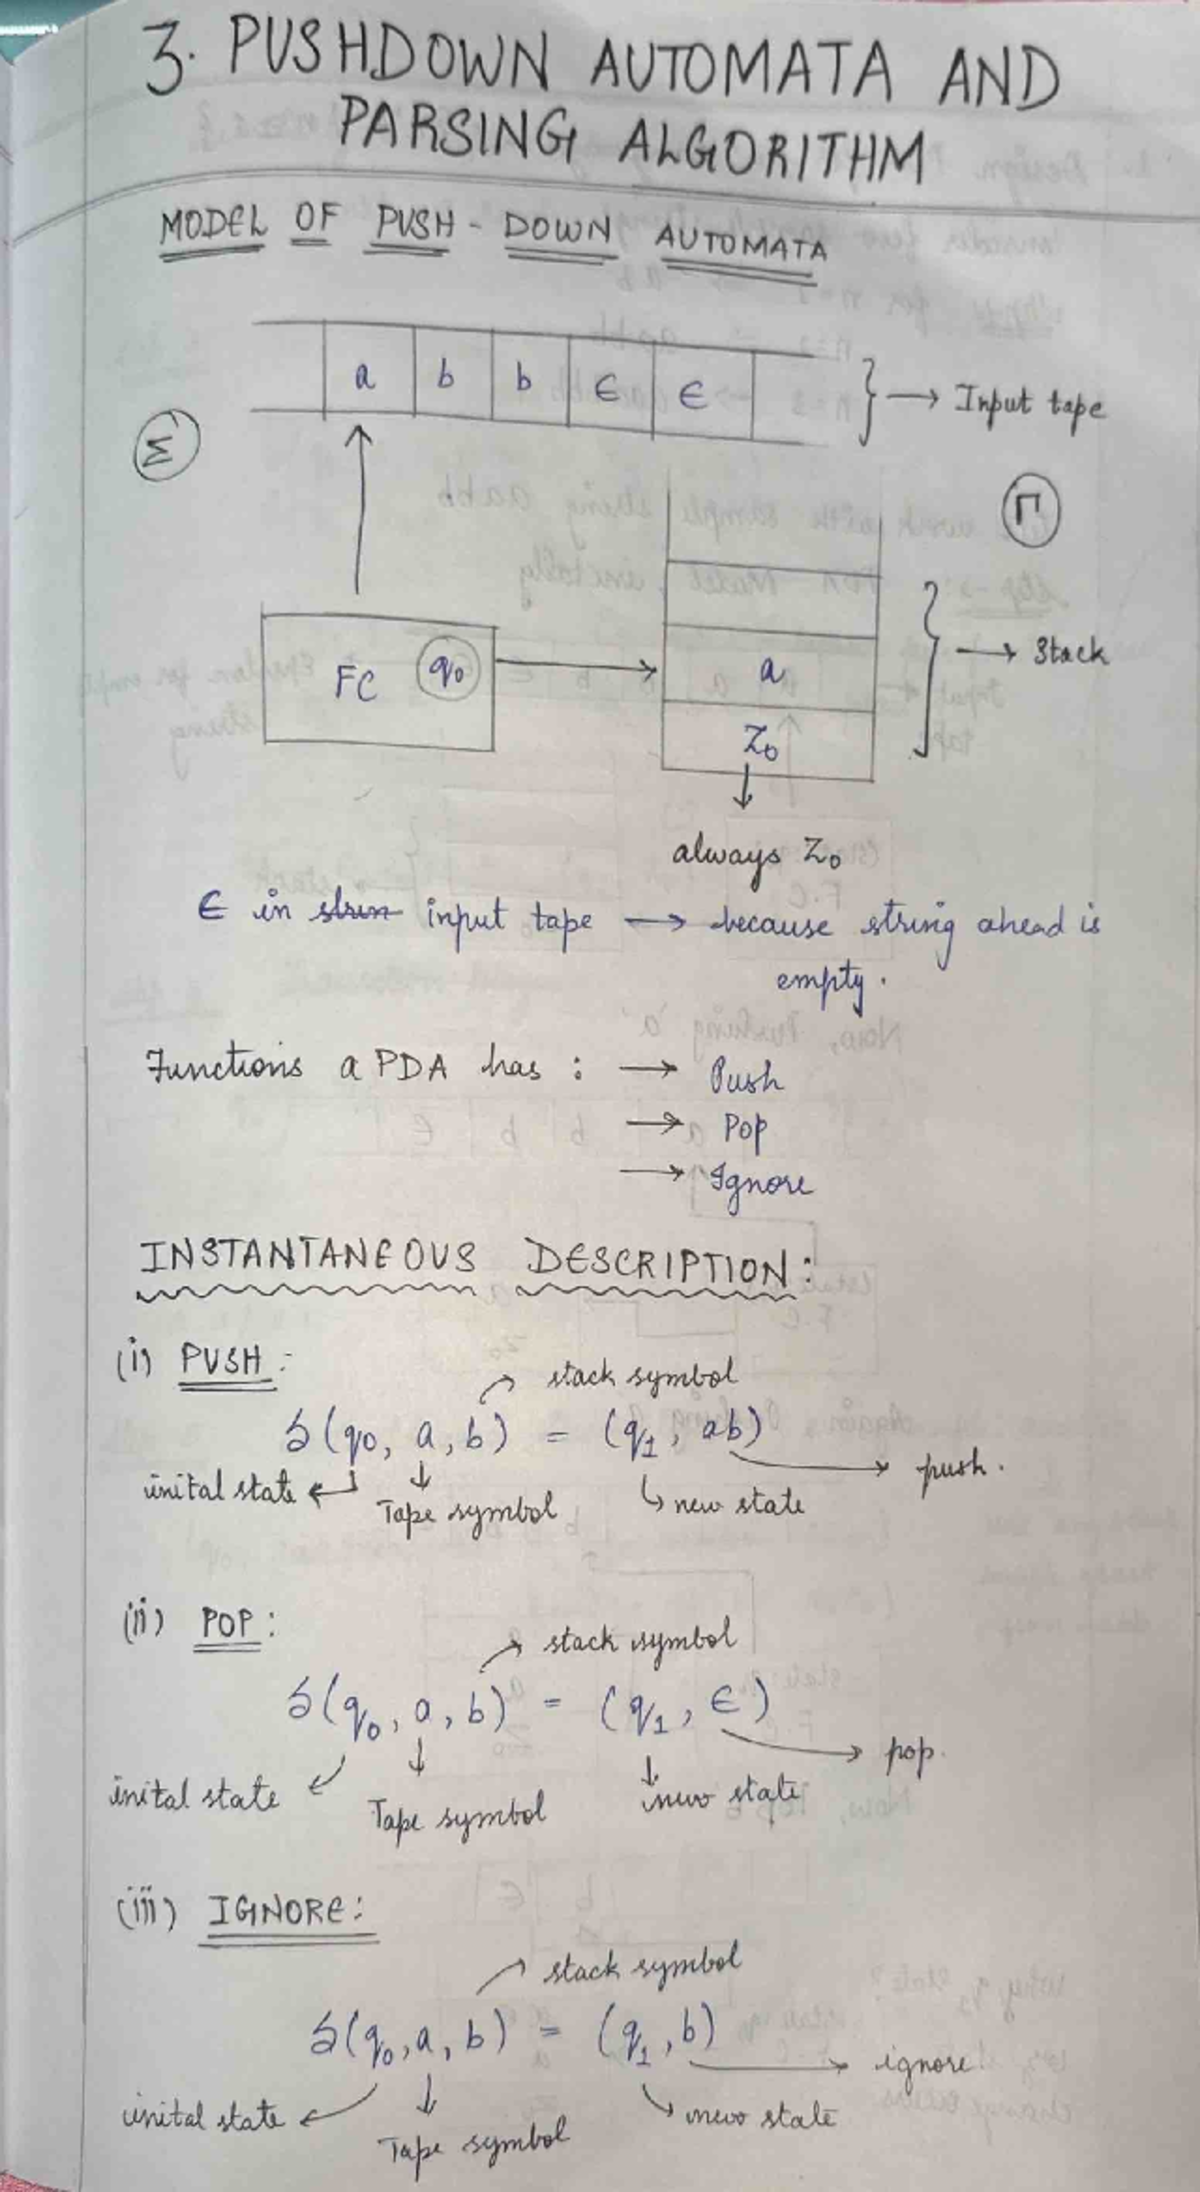 3. PUSHDOWN AUTOMATA AND
PARSING ALGORITHM
MODEL OF PUSH - DOWN AUTOMATA
a b b ϵ ϵ } → Input tape
Σ
Γ
FC q0
a
Z0
} → Stack
always Z0
ϵ in strin input tape → because string ahead is
empty.
Functions a PDA has : → Push
→ Pop
→ Ignore
INSTANTANEOUS DESCRIPTION:
(i) PUSH :
stack symbol
δ(q0, a, b) = (q1, ab)
push.
inital state
Tape symbol
new state
(ii) POP :
stack symbol
δ(q0, a, b) = (q1, ϵ)
pop.
inital state
Tape symbol
new state
(iii) IGNORE:
stack symbol
δ(q0, a, b) = (q1, b)
ignore
inital state
Tape symbol
new state